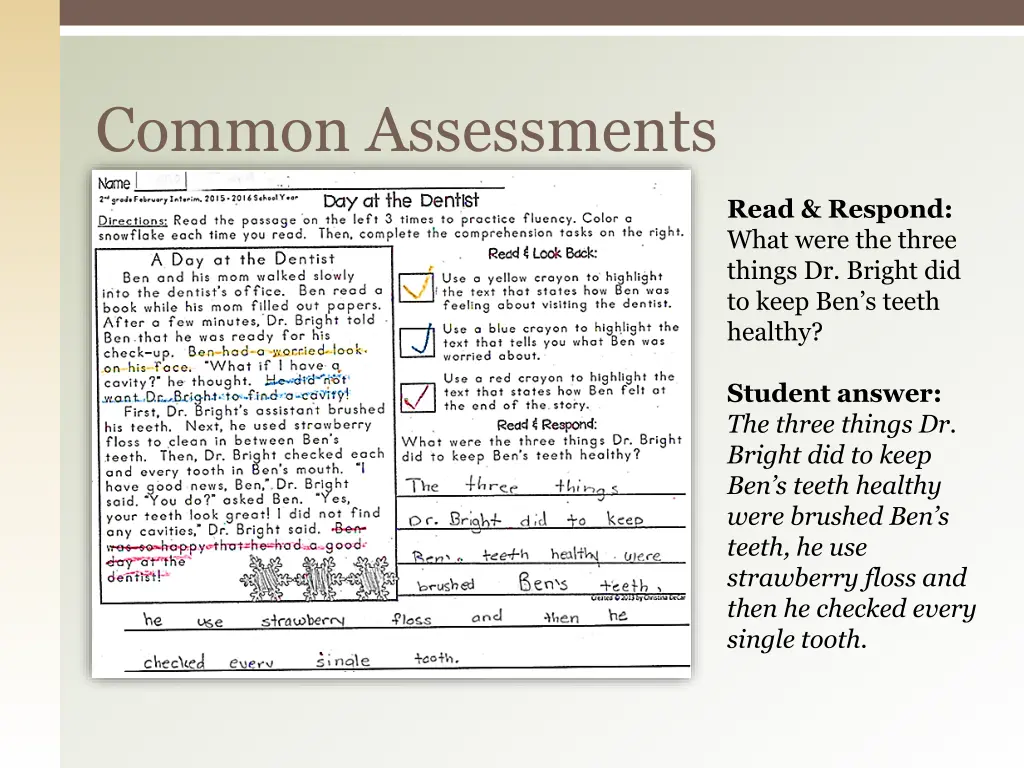 Common Assessments
Name
2nd grade February Interim, 2015-2016 School Year
Day at the Dentist
Directions: Read the passage on the left 3 times to practice fluency. Color a
snowflake each time you read. Then, complete the comprehension tasks on the right.
A Day at the Dentist
Ben and his mom walked slowly
into the dentist's office. Ben read a
book while his mom filled out papers.
After a few minutes, Dr. Bright told
Ben that he was ready for his
check-up. Ben had a worried look
on his face. "What if I have a
cavity?" he thought. He did not
want Dr. Bright to find a cavity!
First, Dr. Bright's assistant brushed
his teeth. Next, he used strawberry
floss to clean in between Ben's
teeth. Then, Dr. Bright checked each
and every tooth in Ben's mouth. "I
have good news, Ben," Dr. Bright
said. "You do?" asked Ben. "Yes,
your teeth look great! I did not find
any cavities," Dr. Bright said. Ben
was so happy that he had a good
day at the
dentist!
Read & Look Back:
Use a yellow crayon to highlight
the text that states how Ben was
feeling about visiting the dentist.
Use a blue crayon to highlight the
text that tells you what Ben was
worried about.
Use a red crayon to highlight the
text that states how Ben felt at
the end of the story.
Read & Respond:
What were the three things Dr. Bright
did to keep Ben's teeth healthy?
The three things
Dr. Bright did to keep
Ben's teeth healthy were
brushed Ben's teeth,
Created © 2013 by Christina DeCar
he use strawberry floss and then he
checked every single tooth.
Read & Respond:
What were the three
things Dr. Bright did
to keep Ben's teeth
healthy?
Student answer:
The three things Dr.
Bright did to keep
Ben's teeth healthy
were brushed Ben's
teeth, he use
strawberry floss and
then he checked every
single tooth.